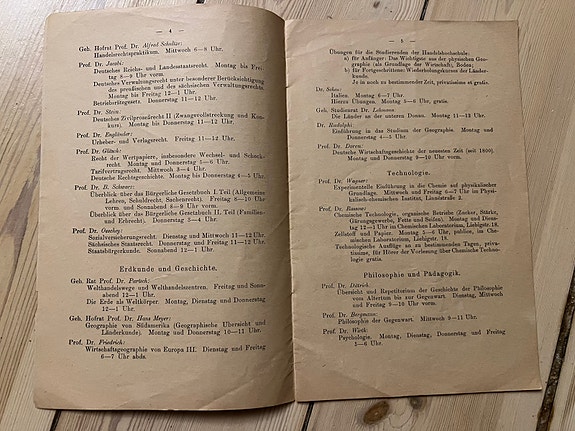 — 4 —
Geh. Hofrat Prof. Dr. Alfred Schultze:
Handelsrechtspraktikum. Mittwoch 6—8 Uhr.
Prof. Dr. Jacobi:
Deutsches Reichs- und Landesstaatsrecht. Montag bis Frei-
tag 8—9 Uhr vorm.
Deutsches Verwaltungsrecht unter besonderer Berücksichtigung
des preußischen und des sächsischen Verwaltungsrechts.
Montag bis Freitag 12—1 Uhr.
Betriebsrätegesetz. Donnerstag 11—12 Uhr.
Prof. Dr. Stein:
Deutsches Zivilprozeßrecht II (Zwangsvollstreckung und Kon-
kurs). Montag bis Donnerstag 11—12 Uhr.
Prof. Dr. Engländer:
Urheber- und Verlagsrecht. Freitag 11—12 Uhr.
Prof. Dr.
Recht der Wertpapiere, insbesondere Wechsel- und Scheck-
recht. Montag und Donnerstag 5—6 Uhr.
Tarifvertragsrecht. Mittwoch 3—4 Uhr.
Deutsche Rechtsgeschichte. Montag bis Donnerstag 4—5 Uhr.
Prof. Dr. B. Schwarz:
Überblick über das Bürgerliche Gesetzbuch I. Teil (Allgemeine
Lehren, Schuldrecht, Sachenrecht). Freitag 8—10 Uhr
vorm. und Sonnabend 8—9 Uhr vorm.
Überblick über das Bürgerliche Gesetzbuch II. Teil (Familien-
und Erbrecht). Donnerstag 3—4 Uhr.
Prof. Dr. Oeschey:
Sozialversicherungsrecht. Dienstag und Mittwoch 11—12 Uhr.
Sächsisches Staatsrecht. Donnerstag und Freitag 11—12 Uhr.
Staatsbürgerkunde. Sonnabend 12—1 Uhr.
Erdkunde und Geschichte.
Geh. Rat Prof. Dr. Partsch:
Welthandelswege und Welthandelszentren. Freitag und Sonn-
abend 12—1 Uhr.
Die Erde als Weltkörper. Montag, Dienstag und Donnerstag
12—1 Uhr.
Geh. Hofrat Prof. Dr. Hans Meyer:
Geographie von Südamerika (Geographische Übersicht und
Länderkunde). Montag und Donnerstag 10—11 Uhr.
Prof. Dr. Friedrich:
Wirtschaftsgeographie von Europa III. Dienstag und Freitag
6—7 Uhr abds.
— 5 —
Übungen für die Studierenden der Handelshochschule:
a) für Anfänger: Das Wichtigste aus der physischen Geo-
graphie (als Grundlage der Wirtschaft, Boden;
b) für Fortgeschrittene: Wiederholungskursus der Länder-
kunde.
Je in noch zu bestimmender Zeit, privatissime et gratis.
Dr. Scheu:
Italien. Montag 6—7 Uhr.
Hierzu Übungen. Montag 5—6 Uhr, gratis.
Geh. Studienrat Dr. Lehmann:
Die Länder an der unteren Donau. Montag 11—13 Uhr.
Dr. Rudolphi:
Einführung in das Studium der Geographie. Montag und
Donnerstag 4—5 Uhr.
Prof. Dr. Doren:
Deutsche Wirtschaftsgeschichte der neuesten Zeit (seit 1800).
Montag und Donnerstag 9—10 Uhr vorm.
Technologie.
Prof. Dr. Wagner:
Experimentelle Einführung in die Chemie auf physikalischer
Grundlage. Mittwoch und Freitag 6—7 Uhr im Physi-
kalisch-chemischen Institut, Linnéstraße 2.
Prof. Dr. Rassow:
Chemische Technologie, organische Betriebe (Zucker, Stärke,
Gärungsgewerbe, Fette und Seifen). Montag und Diens-
tag 12—1 Uhr im Chemischen Laboratorium, Liebigstr. 18.
Zellstoff und Papier. Montag 5—6 Uhr, publice, im Che-
mischen Laboratorium, Liebigstr. 18.
Technologische Ausflüge an zu bestimmenden Tagen, priva-
tissime, für Hörer der Vorlesung über Chemische Techno-
logie gratis.
Philosophie und Pädagogik.
Prof. Dr. Dittrich:
Übersicht und Repetitorium der Geschichte der Philosophie
vom Altertum bis zur Gegenwart. Dienstag, Mittwoch
und Freitag 9—10 Uhr vorm.
Prof. Dr. Bergmann:
Philosophie der Gegenwart. Mittwoch 9—11 Uhr.
Prof. Dr. Wirth:
Psychologie. Montag, Dienstag, Donnerstag und Freitag
5—6 Uhr.